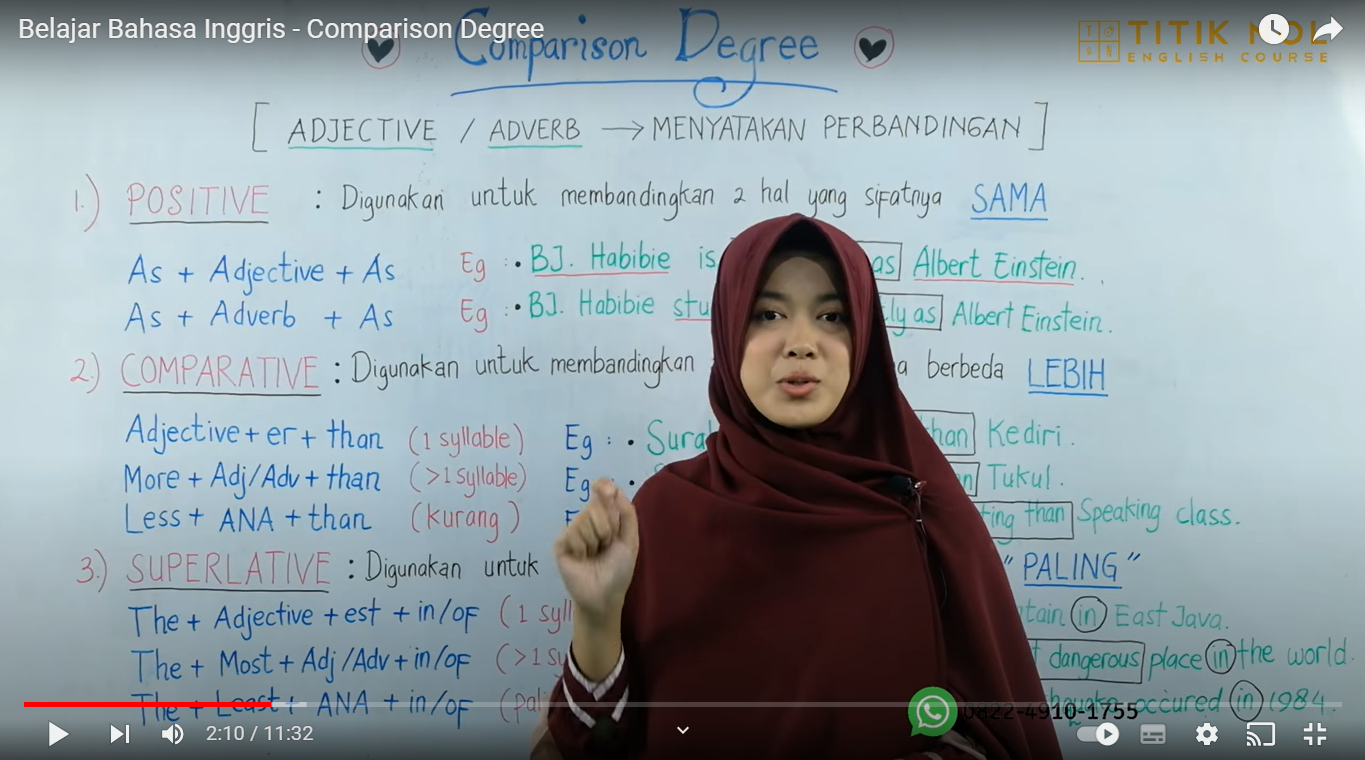 Belajar Bahasa Inggris - Comparison Degree
Comparison Degree
TITIK NOL
ENGLISH COURSE
[ ADJECTIVE / ADVERB → MENYATAKAN PERBANDINGAN ]
1.) POSITIVE : Digunakan untuk membandingkan 2 hal yang sifatnya SAMA
As + Adjective + As Eg : • BJ. Habibie is as Albert Einstein.
As + Adverb + As Eg : • BJ. Habibie as Albert Einstein.
2.) COMPARATIVE : Digunakan untuk membandingkan berbeda LEBIH
Adjective + er + than (1 syllable) Eg : • Kediri.
More + Adj/Adv + than (>1 syllable) Eg : • Tukul.
Less + ANA + than (kurang) than Speaking class.
3.) SUPERLATIVE : Digunakan untuk "PALING"
The + Adjective + est + in/of (1 in East Java.
The + Most + Adj/Adv + in/of (>1 dangerous place in the world.
The + Least + ANA + in/of occured in 1984.
0822-4910-1755
2:10 / 11:32